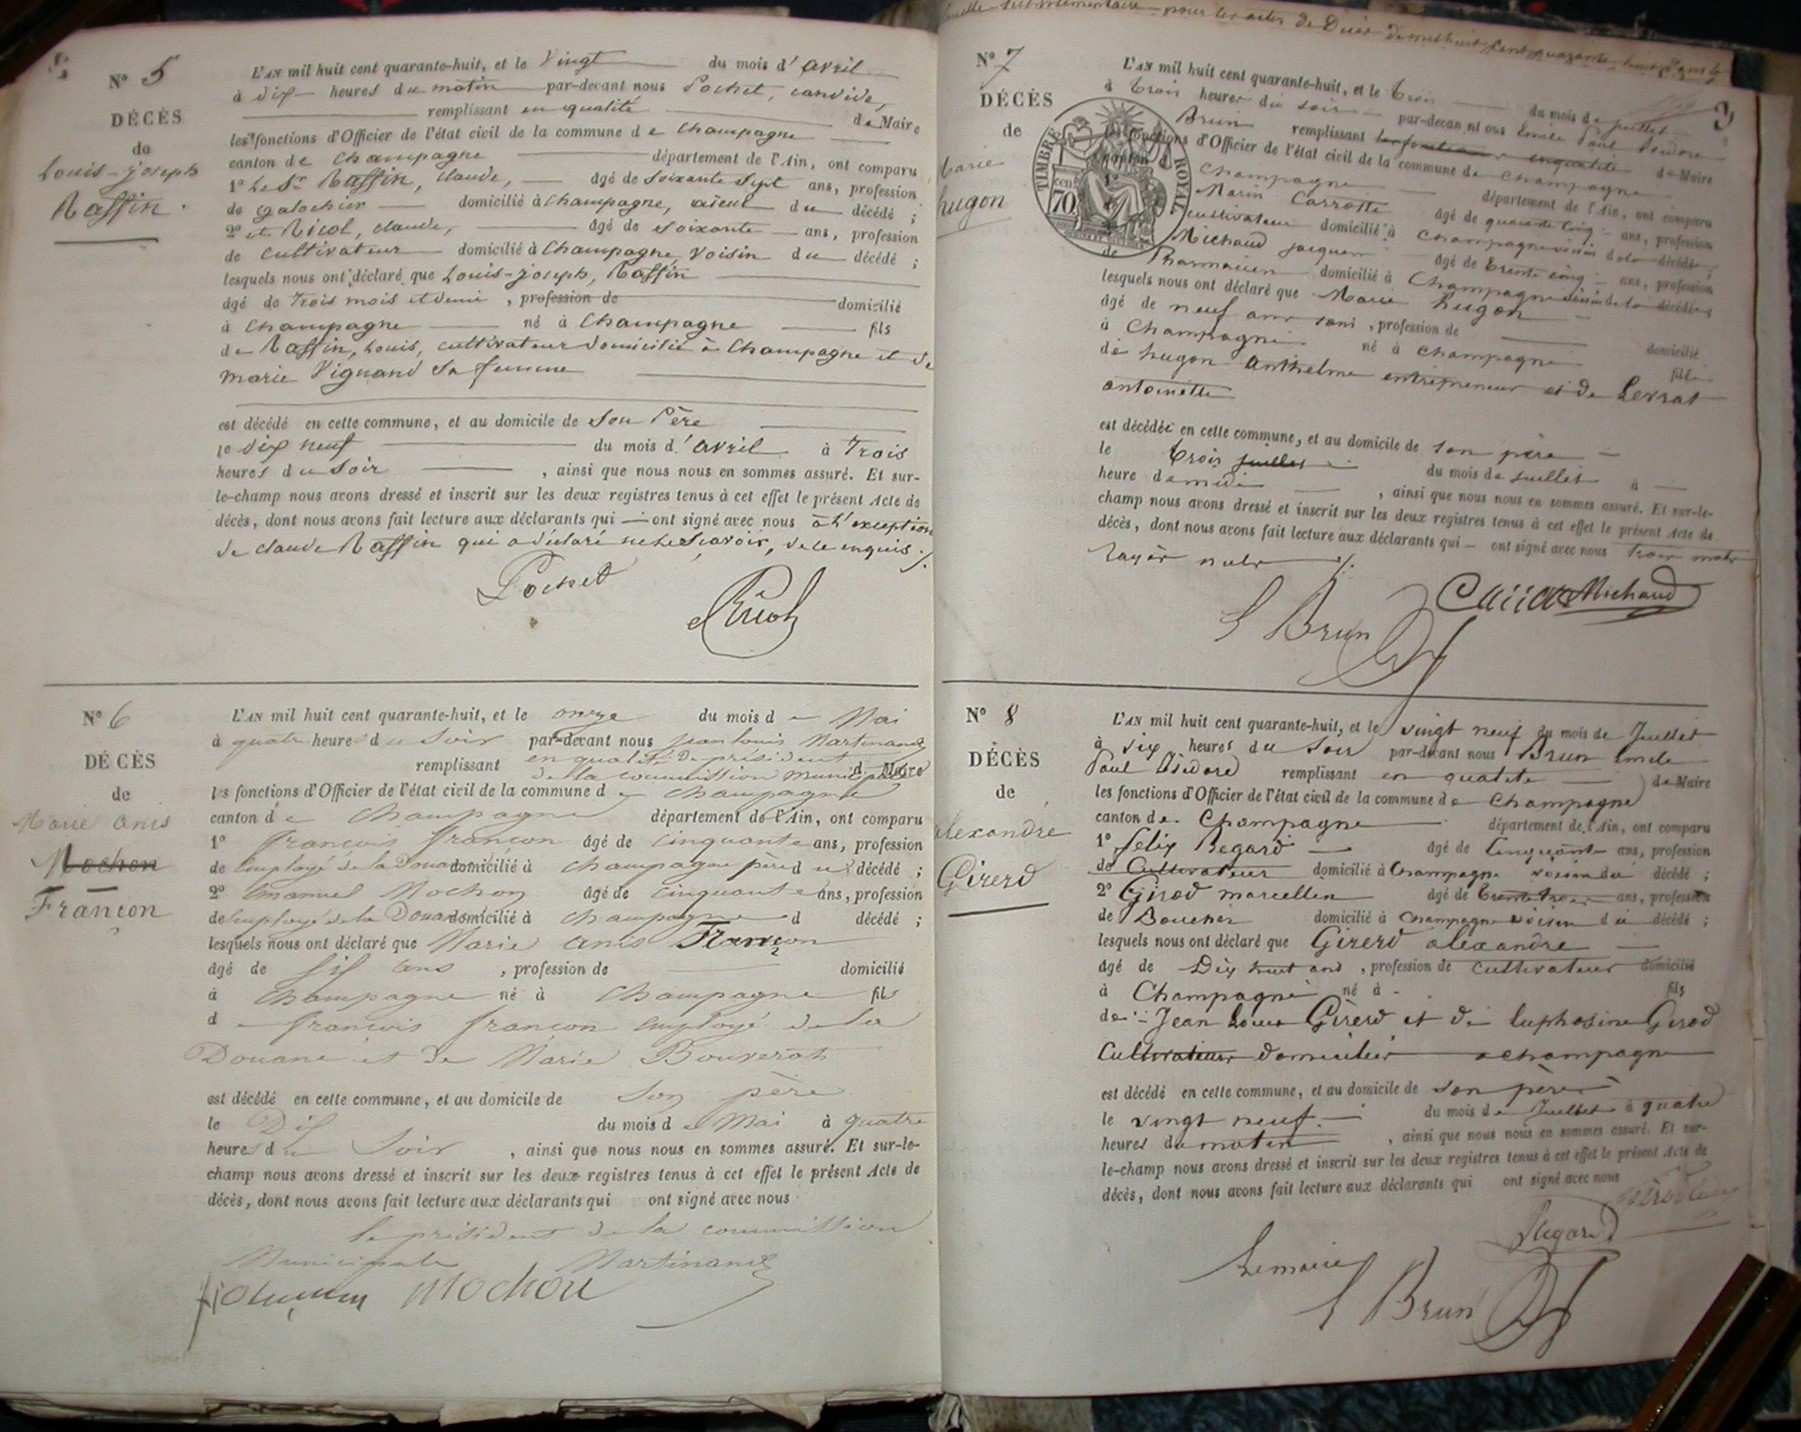 Nº 5
DÉCÈS
de
Louis-joseph
Raffin.
L'AN mil huit cent quarante-huit, et le Vingt du mois d'avril
à dix heures du matin par-devant nous Pochet, candide,
remplissant en qualité de Maire
les fonctions d'Officier de l'état civil de la commune de Champagne
canton de Champagne département de l'Ain, ont comparu
1º Le Sr Raffin, claude, âgé de soixante sept ans, profession
de galochier domicilié à Champagne, aïeul du décédé ;
2º et Nicol, claude, âgé de soixante ans, profession
de cultivateur domicilié à Champagne, voisin du décédé ;
lesquels nous ont déclaré que Louis-joseph, Raffin
âgé de trois mois et demi, profession de domicilié
à Champagne né à Champagne fils
de Raffin, Louis, cultivateur domicilié à Champagne et de
marie Vignand sa femme
est décédé en cette commune, et au domicile de son Père
le dix neuf du mois d'avril à trois
heures du soir, ainsi que nous nous en sommes assuré. Et sur-
le-champ nous avons dressé et inscrit sur les deux registres tenus à cet effet le présent Acte de
décès, dont nous avons fait lecture aux déclarants qui ont signé avec nous à l'exception
de claude Raffin qui a déclaré ne le scavoir, de ce enquis ./.
Pochet
Nº 6
DÉCÈS
de
Marie anis
Mochon
Françon
L'AN mil huit cent quarante-huit, et le onze du mois de Mai
à quatre heures du soir par-devant nous jean louis Martinand
remplissant en qualité de président
de la commission municipale de Maire
les fonctions d'Officier de l'état civil de la commune de champagne
canton de Champagne département de l'Ain, ont comparu
1º françois françon âgé de cinquante ans, profession
de Employé de la Douane domicilié à champagne père du décédé ;
2º Emanuel Mochon âgé de cinquante ans, profession
de Employé de la Douane domicilié à champagne d décédé ;
lesquels nous ont déclaré que Marie anis Françon
âgé de six ans, profession de domicilié
à Champagne né à Champagne fils
de françois françon Employé de la
Douane et de Marie Bouverat
est décédé en cette commune, et au domicile de son père
le Dix du mois de Mai à quatre
heures du Soir, ainsi que nous nous en sommes assuré. Et sur-le-
champ nous avons dressé et inscrit sur les deux registres tenus à cet effet le présent Acte de
décès, dont nous avons fait lecture aux déclarants qui ont signé avec nous
le président de la commission
Municipale Martinand
Mochon
supplémentaire pour les actes de Décès de mil huit cent quarante huit
Nº 7
DÉCÈS
de
Marie
hugon
TIMBRE ROYAL
70
L'AN mil huit cent quarante-huit, et le trois du mois de juillet
à trois heures du soir par-devant nous Emile Paul Isidore
Brun remplissant les fonctions en qualité de Maire
les fonctions d'Officier de l'état civil de la commune de Champagne
canton d Champagne département de l'Ain, ont comparu
1º Marin Carrotte âgé de quarante cinq ans, profession
cultivateur domicilié à Champagne voisin de la décédée ;
Michaud jacques âgé de trente cinq ans, profession
de Pharmacien domicilié à Champagne voisin de la décédée
lesquels nous ont déclaré que Marie hugon
âgé de neuf ans, profession de domicilié
à Champagne né à Champagne fille
de hugon Anthelme entrepreneur et de Levrat
antoinette
est décédée en cette commune, et au domicile de son père
le trois juillet du mois de juillet à
heure de midi, ainsi que nous nous en sommes assuré. Et sur-le-
champ nous avons dressé et inscrit sur les deux registres tenus à cet effet le présent Acte de
décès, dont nous avons fait lecture aux déclarants qui ont signé avec nous trois mots
rayés nuls ./.
Michaud
E Brun
Nº 8
DÉCÈS
de
alexandre
Girerd
L'AN mil huit cent quarante-huit, et le vingt neuf du mois de Juillet
à six heures du soir par-devant nous Brun Emile
Paul Isidore remplissant en qualité de Maire
les fonctions d'Officier de l'état civil de la commune de Champagne
canton de Champagne département de l'Ain, ont comparu
1º félix Begard âgé de Cinquante ans, profession
de Cultivateur domicilié à Champagne voisin du décédé ;
2º Girod marcellin âgé de trente trois ans, profession
de Boucher domicilié à Champagne voisin du décédé ;
lesquels nous ont déclaré que Girerd alexandre
âgé de Dix huit ans, profession de cultivateur domicilié
à Champagne né à fils
de Jean Louis Girerd et de Euphosine Girod
Cultivateur domiciliés a champagne
est décédé en cette commune, et au domicile de son père
le vingt neuf du mois de Juillet à quatre
heures du matin, ainsi que nous nous en sommes assuré. Et sur-
le-champ nous avons dressé et inscrit sur les deux registres tenus à cet effet le présent Acte de
décès, dont nous avons fait lecture aux déclarants qui ont signé avec nous
Le maire
E Brun